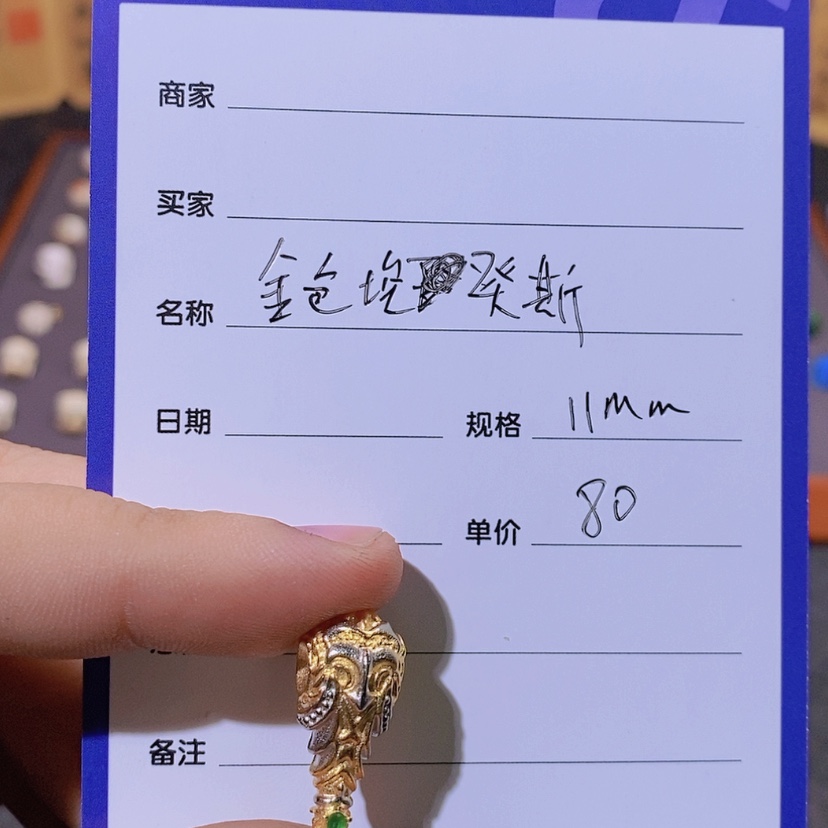 商家
买家
名称 金色坎癸斯
日期 规格 11mm
单价 80
备注